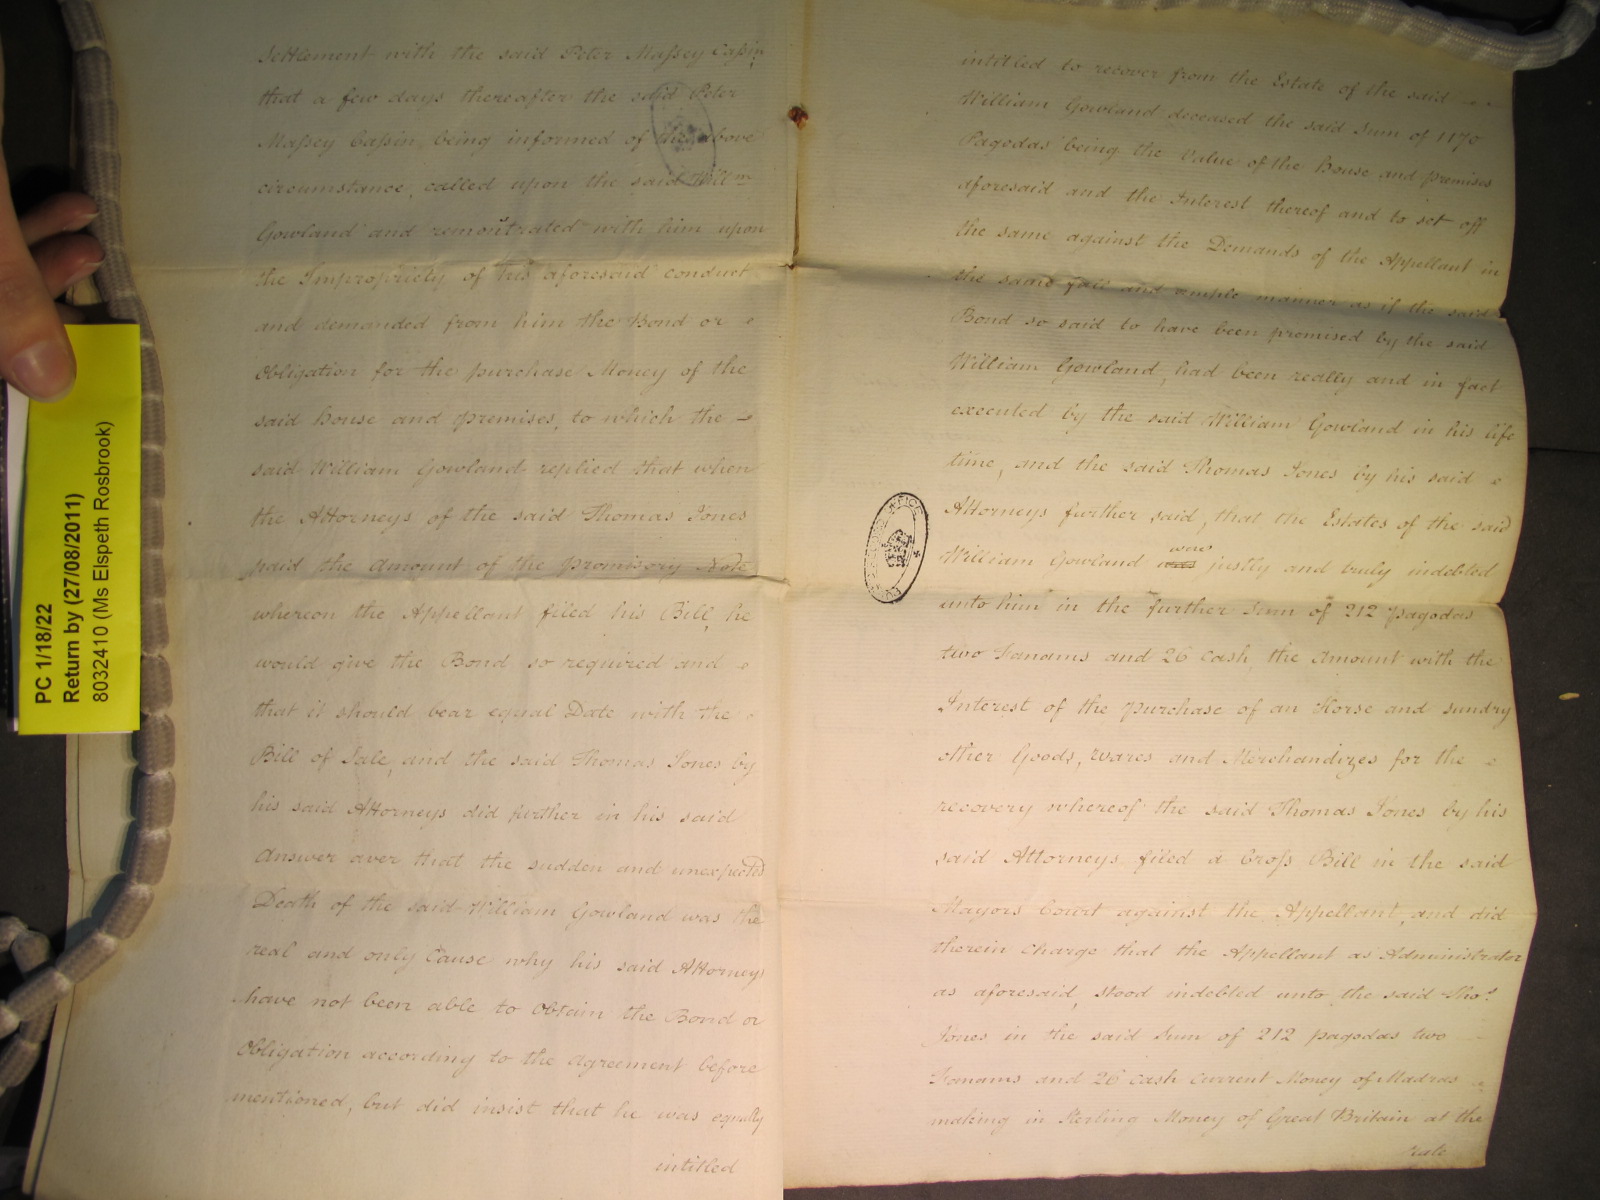 Settlement with the said Peter Massey Cassin,
that a few days thereafter the said Peter
Massey Cassin being informed of the above
circumstance, called upon the said Willm
Gowland and remonstrated with him upon
the Impropriety of his aforesaid conduct
and demanded from him the Bond or
Obligation for the purchase Money of the
said house and premises, to which the
said William Gowland replied that when
the Attorneys of the said Thomas Jones
paid the Amount of the Promissory Note
whereon the Appellant filed his Bill, he
would give the Bond so required and
that it should bear equal Date with the
Bill of Sale, and the said Thomas Jones by
his said Attorneys did further in his said
Answer aver that the sudden and unexpected
Death of the said William Gowland was the
real and only Cause why his said Attorneys
have not been able to Obtain the Bond or
Obligation according to the Agreement before
mentioned, but did insist that he was equally
intitled
intitled to recover from the Estate of the said
William Gowland deceased the said Sum of 1170
Pagodas being the Value of the house and premises
aforesaid and the Interest thereof and to set off
the same against the Demands of the Appellant in
the same full and ample manner as if the said
Bond so said to have been promised by the said
William Gowland, had been really and in fact
executed by the said William Gowland in his life
time, and the said Thomas Jones by his said
Attorneys further said, that the Estates of the said
William Gowland were justly and truly indebted
unto him in the further Sum of 212 pagodas
two Fanams and 26 Cash, the Amount with the
Interest of the purchase of an Horse and sundry
other Goods, Wares and Merchandizes for the
recovery whereof the said Thomas Jones by his
said Attorneys filed a Cross Bill in the said
Mayors Court against the Appellant, and did
therein Charge that the Appellant as Administrator
as aforesaid, stood indebted unto the said Thos.
Jones in the said Sum of 212 pagodas two
Fanams and 26 cash current Money of Madras
making in Sterling Money of Great Britain at the
rate
PUBLIC RECORD OFFICE
PC 1/18/22
Return by (27/08/2011)
8032410 (Ms Elspeth Rosbrook)